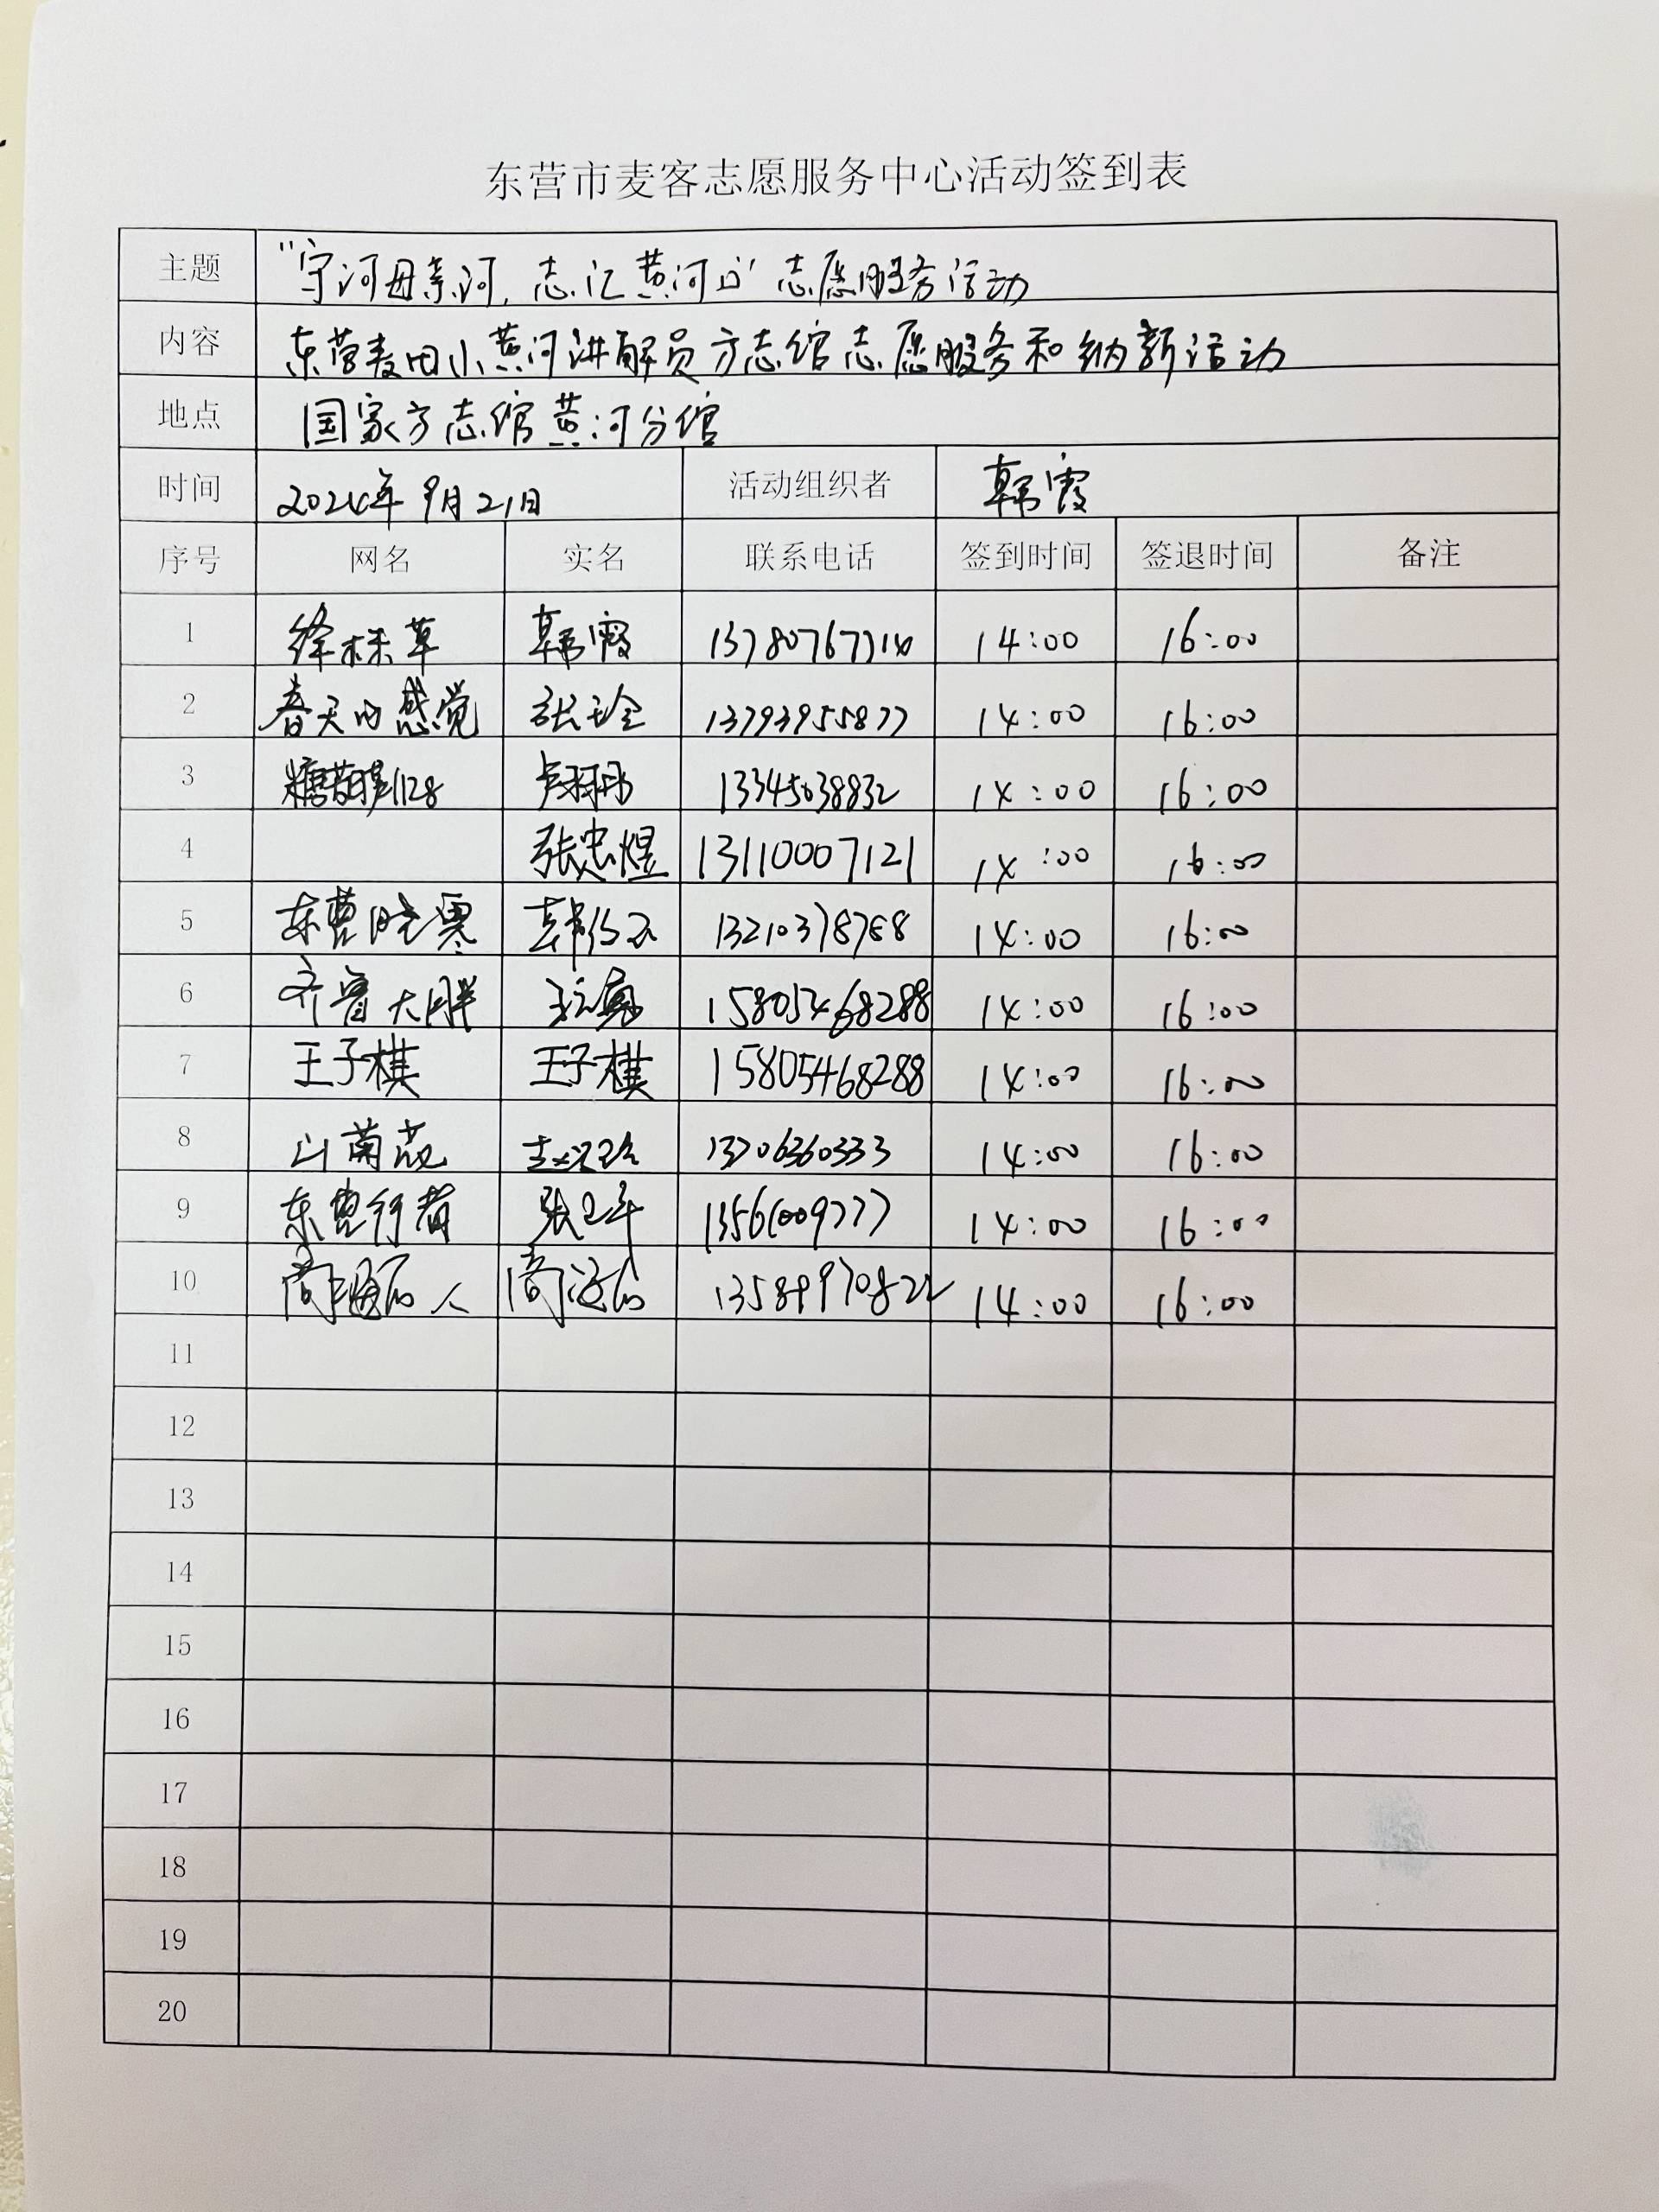 东营市麦客志愿服务中心活动签到表
主题 "守河母亲河，志汇黄河口"志愿服务活动
内容 东营麦田小黄河讲解员方志馆志愿服务和纳新活动
地点 国家方志馆黄河分馆
时间 2024年9月21日 活动组织者 韩霞
序号 网名 实名 联系电话 签到时间 签退时间 备注
1 绛株草 韩霞 13780767714 14:00 16:00
2 春天的感觉 张玲 13793955877 14:00 16:00
3 1128 13345038832 14:00 16:00
4 张忠煜 13110007121 14:00 16:00
5 东营晓寒 13210378768 14:00 16:00
6 齐鲁大胖 15805468288 14:00 16:00
7 王子棋 王子棋 15805468288 14:00 16:00
8 山菊花 13706360333 14:00 16:00
9 东营行者 张卫华 13561009777 14:00 16:00
10 13589970822 14:00 16:00
11
12
13
14
15
16
17
18
19
20